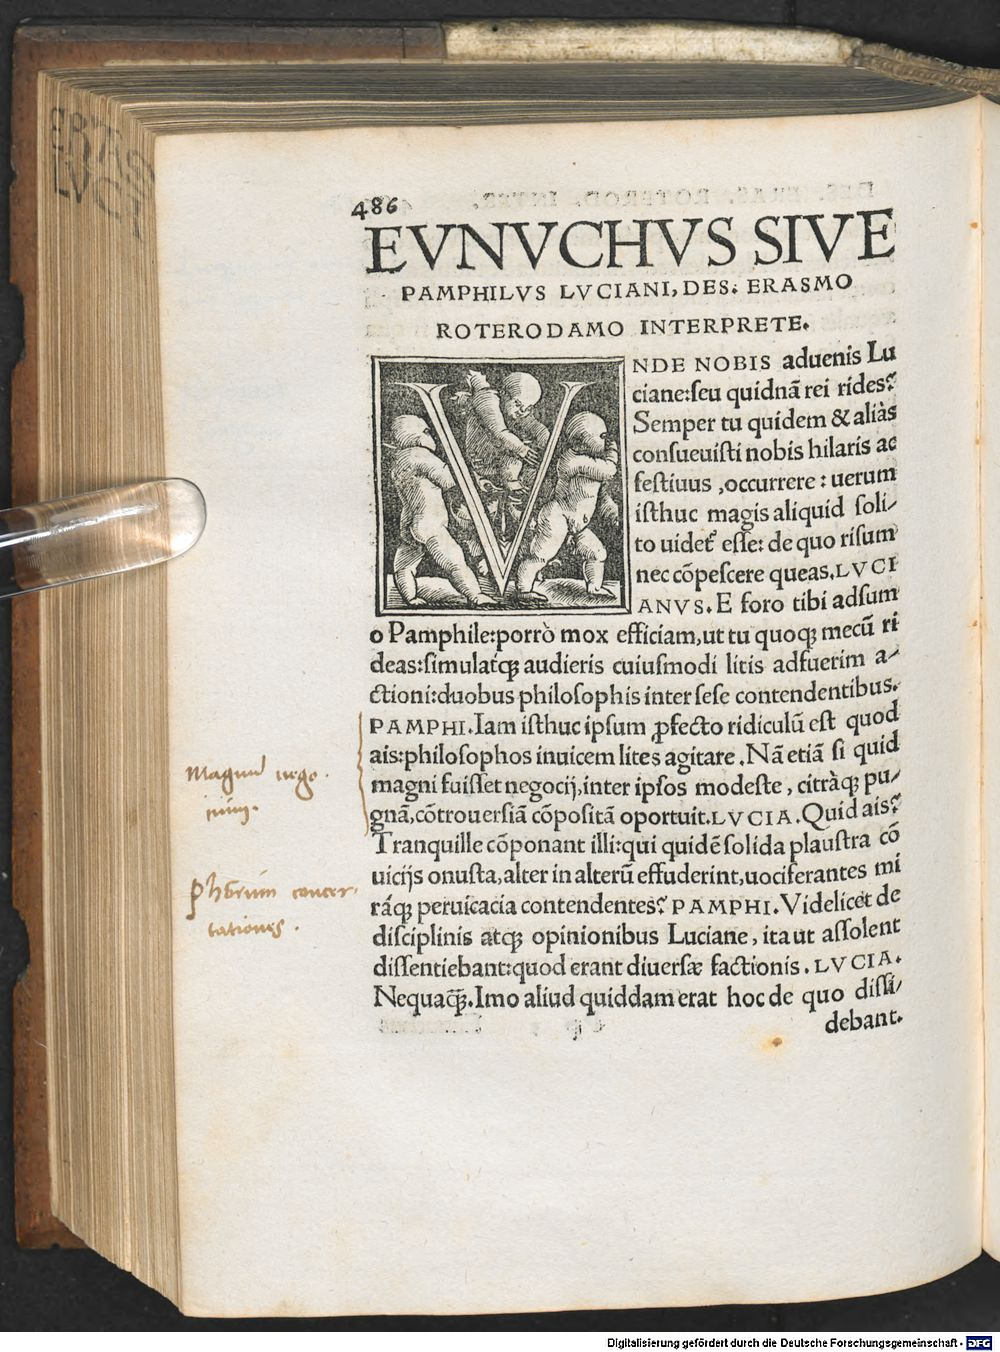 ERAS
LVCI
486
EVNVCHVS SIVE
PAMPHILVS LVCIANI, DES. ERASMO
ROTERODAMO INTERPRETE.
VNDE NOBIS aduenis Lu
ciane:seu quidnã rei rides?
Semper tu quidem & aliàs
consueuisti nobis hilaris ac
festiuus ,occurrere: uerum
isthuc magis aliquid soli-
to uidet᷑ esse: de quo risum
nec cõpescere queas.LVCI
ANVS. E foro tibi adsum
o Pamphile:porrò mox efficiam,ut tu quoqꝫ mecũ ri
deas:simulatqꝫ audieris cuiusmodi litis adfuerim a-
ctioni:duobus philosophis inter sese contendentibus.
PAMPHI.Iam isthuc ipsum ꝓfecto ridiculũ est quod
ais:philosophos inuicem lites agitare .Nã etiã si quid
magni fuisset negocij,inter ipsos modeste, citràqꝫ pu-
gnã,cõtrouersiã cõpositã oportuit.LVCIA.Quid ais?
Tranquille cõponant illi:qui quidẽ solida plaustra cõ
uicijs onusta,alter in alterũ effuderint,uociferantes mi
ráqꝫ peruicacia contendentes? PAMPHI.Videlicet de
disciplinis atqꝫ opinionibus Luciane, ita ut assolent
dissentiebant:quod erant diuersæ factionis. LVCIA.
Nequaqꝫ̃.Imo aliud quiddam erat hoc de quo dissi-
debant.
Magnũ nego
cium.
phōrum concer
tationes.
Digitalisierung gefördert durch die Deutsche Forschungsgemeinschaft - DFG